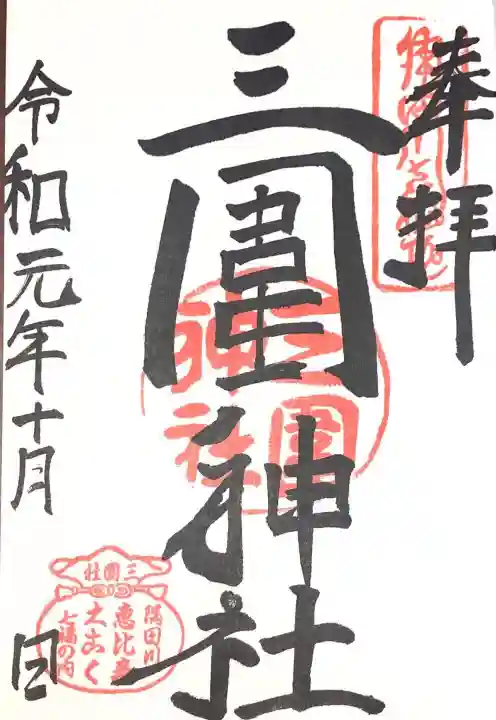 奉拝
三囲神社
令和元年十月 日
三囲神社
三囲社
隅田川
恵比寿
大こく
七福の内